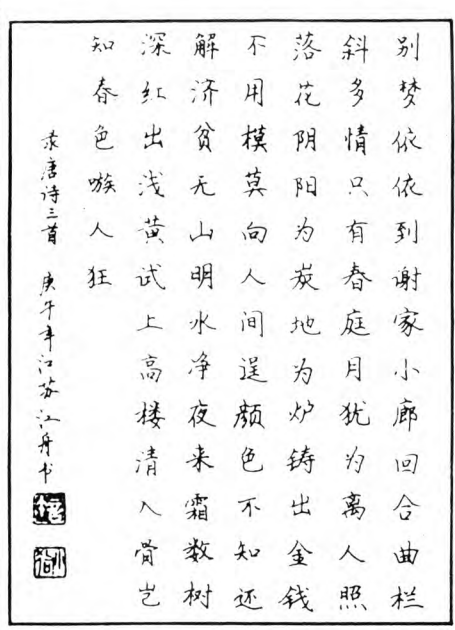 别梦依依到谢家小廊回合曲栏
斜多情只有春庭月犹为离人照
落花阴阳为炭地为炉铸出金钱
不用模莫向人间逞颜色不知还
解济贫无山明水净夜来霜数树
深红出浅黄试上高楼清入骨岂
知春色嗾人狂
录唐诗三首 庚午年江苏江舟书